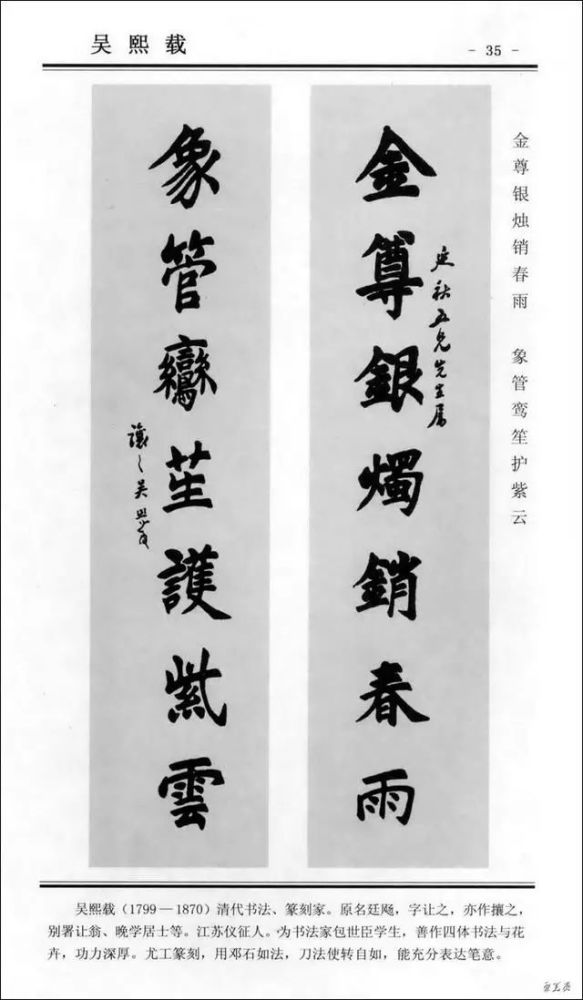 吴熙载
- 35 -
金尊银烛销春雨 象管鸾笙护紫云
金尊銀燭銷春雨
延秋五兄先生属
象管鸞笙護紫雲
讓之吴熙載
吴熙载（1799—1870）清代书法、篆刻家。原名廷飏，字让之，亦作攘之，
别署让翁、晚学居士等。江苏仪征人。为书法家包世臣学生，善作四体书法与花
卉，功力深厚。尤工篆刻，用邓石如法，刀法使转自如，能充分表达笔意。